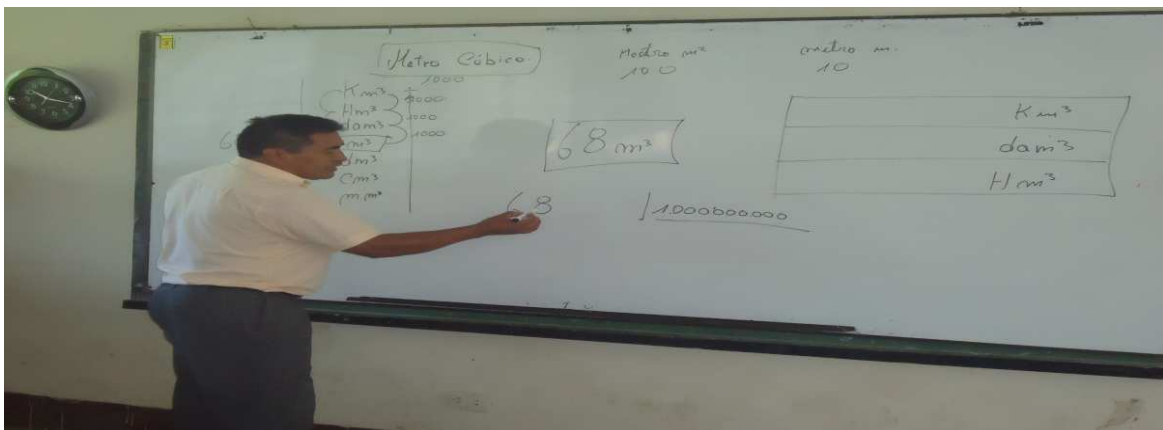 Metro Cúbico.
1000
Km³
Hm³
dam³
m³
dm³
cm³
mm³
1000
1000
1000
m²
100
metro m.
10
68 m³
68
1.000000.000
Km³
dam³
Hm³